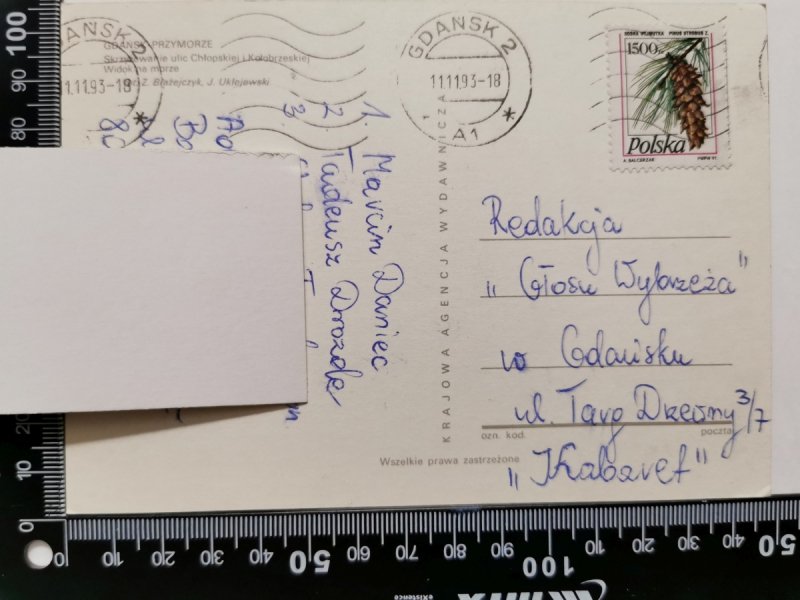 GDAŃSK-PRZYMORZE
Skrzyżowanie ulic Chłopskiej i Kołobrzeskiej
Widok na morze
Fot. Z. Błażejczyk, J. Uklejewski
GDAŃSK 2
11.11.93-18
GDAŃSK 2
11.11.93-18
A1
SOSNA WEJMUTKA PINUS STROBUS L.
1500 zł
Polska
A. BALCERZAK
PWPW 93
1. Marcin Daniec
2. Tadeusz Drozda
3.
KRAJOWA AGENCJA WYDAWNICZA
Redakcja
"Głosu Wybrzeża"
w Gdańsku
ul. Targ Drzewny 3/7
ozn. kod. poczta
"Kabaret"
Wszelkie prawa zastrzeżone
100
90
80
10
0
0
10
20
30
40
50
60
70
80
90
100
10
20
30
40
50
eXistence